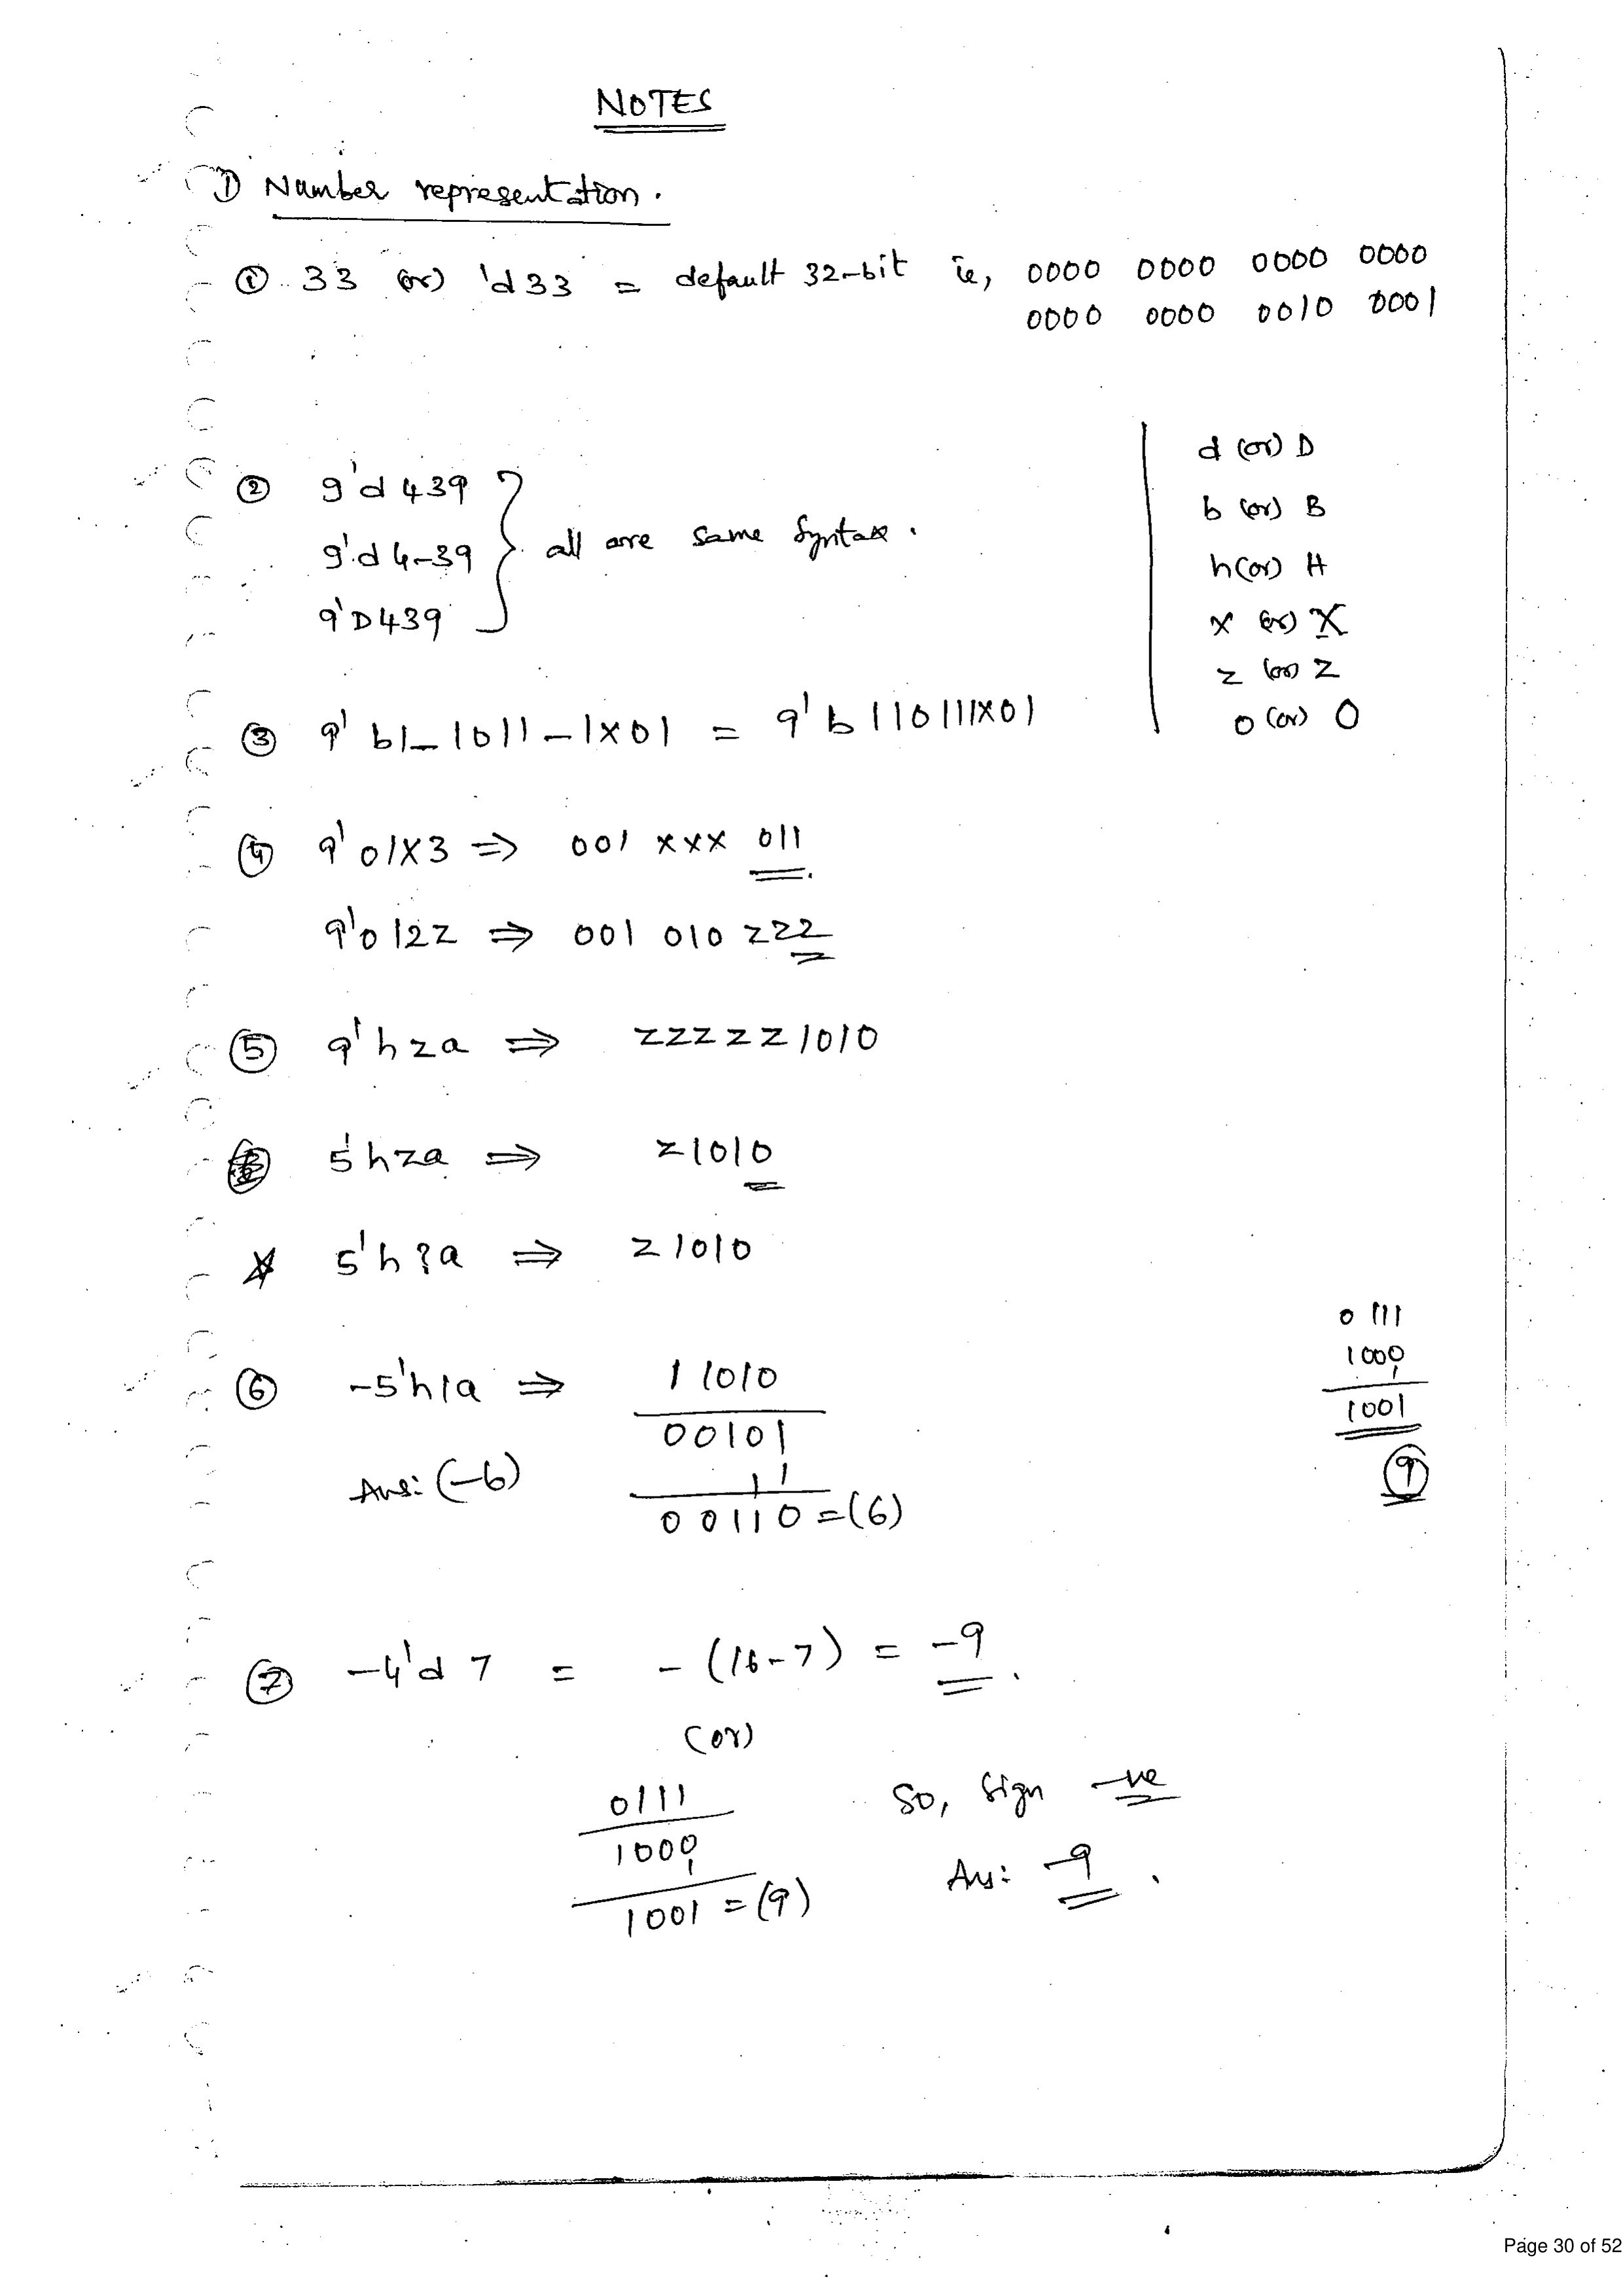 NOTES
1) Number representation.
① 33 (or) 'd33 = default 32-bit ie, 0000 0000 0000 0000
0000 0000 0010 0001
② 9'd439
9'd4_39 } all are same syntax.
9'D439
d (or) D
b (or) B
h (or) H
x (or) X
z (or) Z
o (or) O
③ 9'b1_1011_1x01 = 9'b110111x01
④ 9'o1x3 ⇒ 001 xxx 011
9'o12z ⇒ 001 010 zzz
⑤ 9'hza ⇒ zzzzz1010
5'hza ⇒ z1010
☆ 5'h?a ⇒ z1010
⑥ -5'h1a ⇒ 11010
00101
1 1
Ans: (-6)
00110 = (6)
0111
1000
1
1001
9
⑦ -4'd7 = -(16-7) = -9.
(or)
0111
1000
1
1001 = (9)
So, sign -ve
Ans: -9.
Page 30 of 52